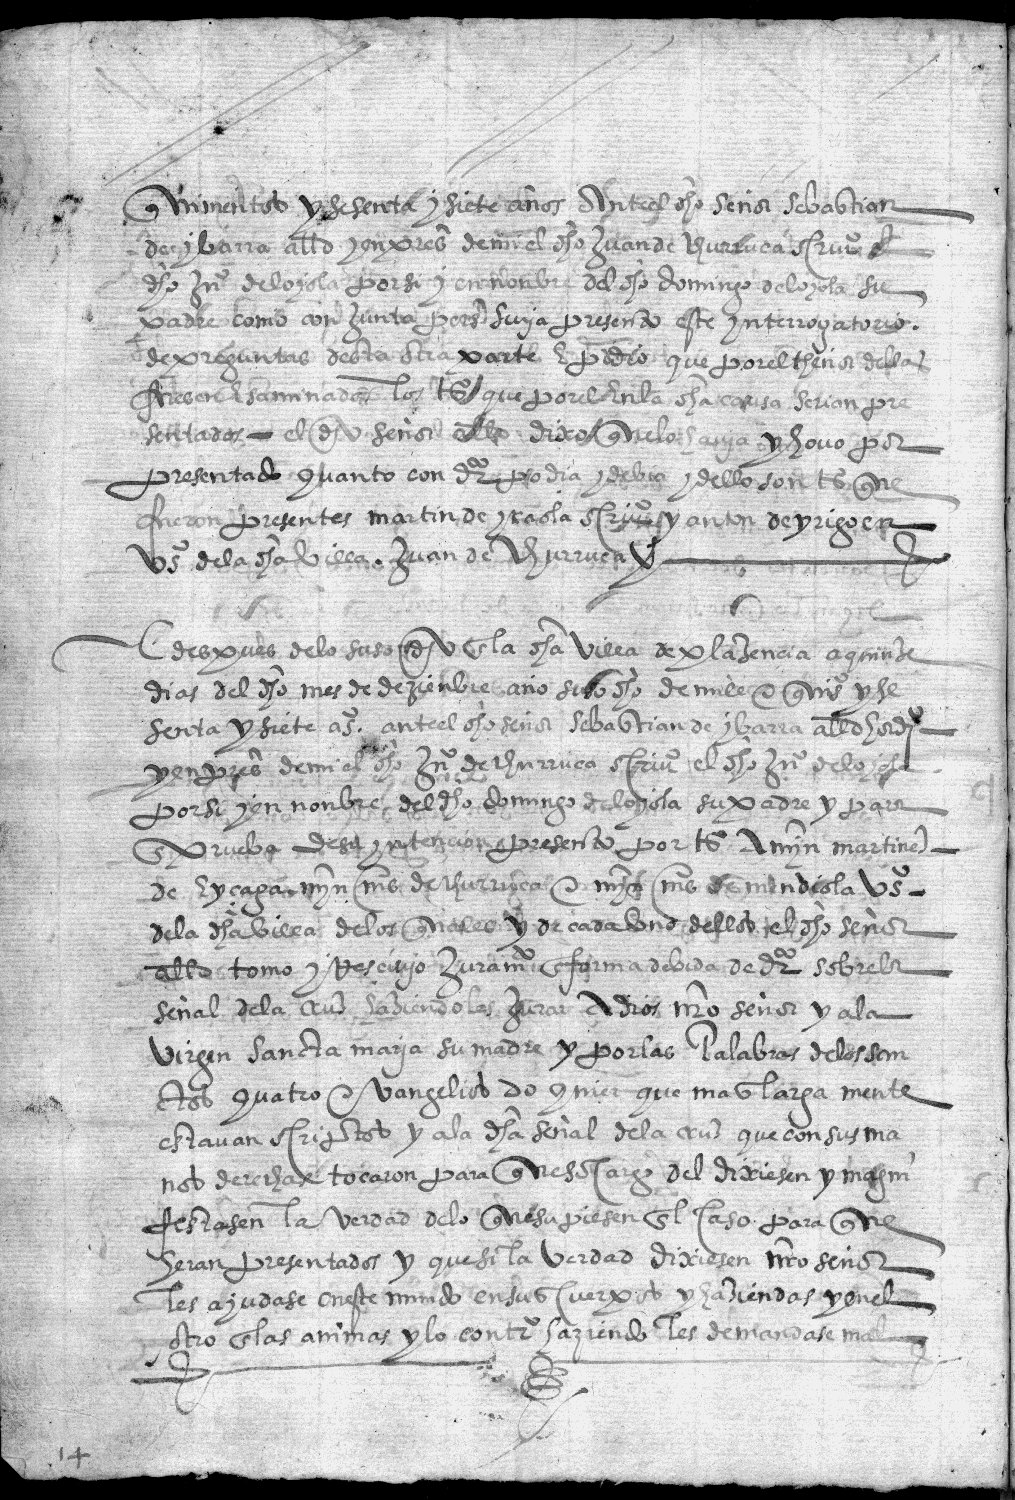 quinientos y sesenta y siete años Antel dho señor sebastian
de ybarra allde y en pres de mi el dho Juan de churruca scriuo el
dho Jno de loyola por si y en nonbre del dho domingo de loyola su
padre como conjunta persa suya presento este ynterrogatorio
de preguntas desta otra parte e pidio que por el thenor dellas
fuesen esaminados los ts que por el en la dha causa serian pre
sentados el dho señor allde dixo que lo hauia y hovo por
presentado quanto con dro podia y devia y dello son ts que
fueron presentes martin de yraola scriuo y anton de yrigoen
vs de la dha villa. Juan de churruca
E despues de lo suso dho en la dha villa de plazencia a quinze
dias del dho mes de dezienbre año suso dho de mill e quis y se
senta y siete as. ante el dho señor sebastian de ybarra allde hordio
y en pres de mi el dho Jno de churruca scriuo el dho Jno de loyola
por si y en nonbre del dho domingo de loyola su padre y para
en prueba de su yntencion presento por ts A myn martinez
de lycaga myn ms de churruca e myn ms de mendiola vs
de la dha villa de los quales y de cada vno dellos el dho señor
allde tomo y Rescivio Juramo en forma devida de dro sobre la
señal de la cruz haziendolas Jurar A dios nro señor y a la
virgen sancta maria su madre y por las palabras de los san
ctos quatro evangelios do quier que mas larga mente
estavan scriptos y a la dha señal de la cruz que con sus ma
nos derechas tocaron para que so cargo del dixiesen y magni
festasen la verdad de lo que supiesen en el caso para que
heran presentados y que si la verdad dixiesen nro señor
les ayudase en este mundo en sus cuerpos y haziendas y en el
otro en las animas y lo contro haziendo les demandase mal
14